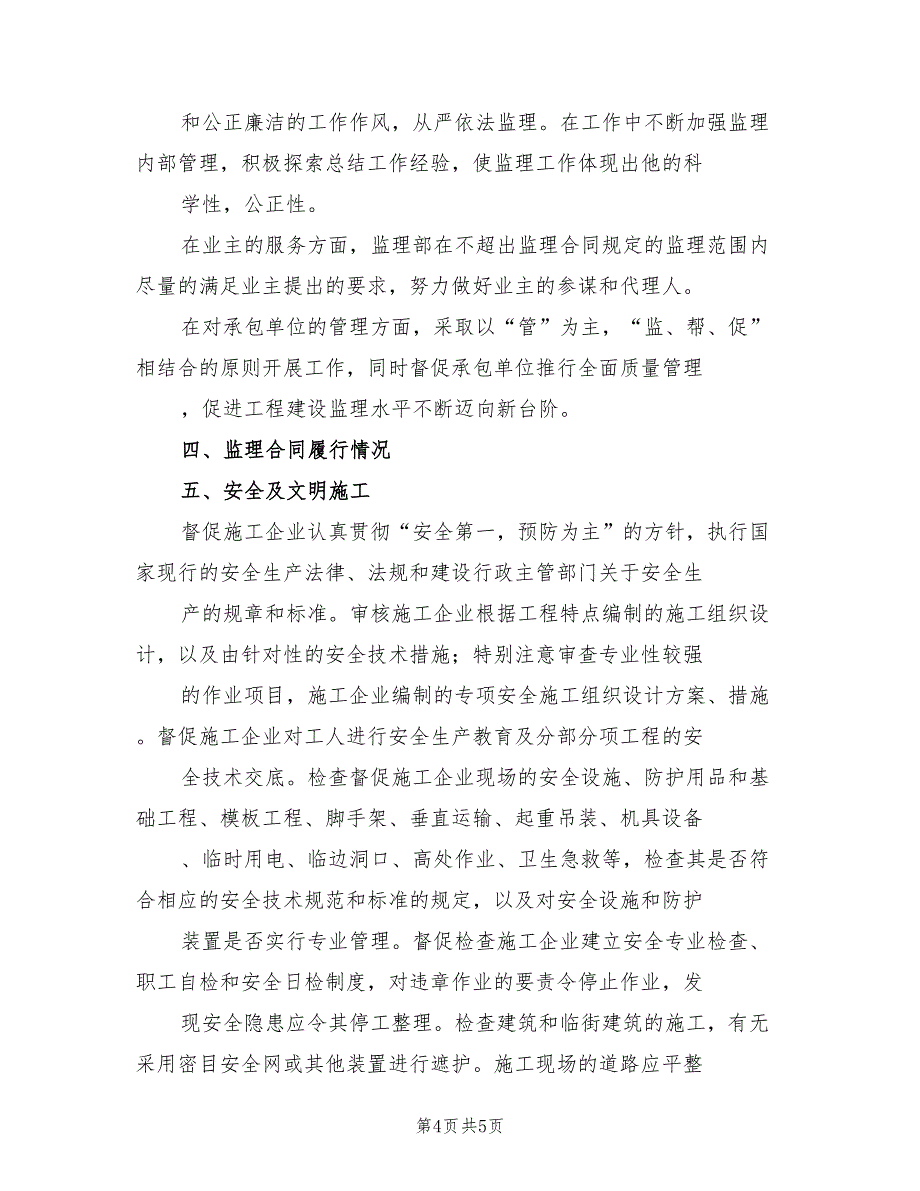 和公正廉洁的工作作风，从严依法监理。在工作中不断加强监理
内部管理，积极探索总结工作经验，使监理工作体现出他的科
学性，公正性。
在业主的服务方面，监理部在不超出监理合同规定的监理范围内
尽量的满足业主提出的要求，努力做好业主的参谋和代理人。
在对承包单位的管理方面，采取以“管”为主，“监、帮、促”
相结合的原则开展工作，同时督促承包单位推行全面质量管理
，促进工程建设监理水平不断迈向新台阶。
四、监理合同履行情况
五、安全及文明施工
督促施工企业认真贯彻“安全第一，预防为主”的方针，执行国
家现行的安全生产法律、法规和建设行政主管部门关于安全生
产的规章和标准。审核施工企业根据工程特点编制的施工组织设
计，以及由针对性的安全技术措施；特别注意审查专业性较强
的作业项目，施工企业编制的专项安全施工组织设计方案、措施
。督促施工企业对工人进行安全生产教育及分部分项工程的安
全技术交底。检查督促施工企业现场的安全设施、防护用品和基
础工程、模板工程、脚手架、垂直运输、起重吊装、机具设备
、临时用电、临边洞口、高处作业、卫生急救等，检查其是否符
合相应的安全技术规范和标准的规定，以及对安全设施和防护
装置是否实行专业管理。督促检查施工企业建立安全专业检查、
职工自检和安全日检制度，对违章作业的要责令停止作业，发
现安全隐患应令其停工整理。检查建筑和临街建筑的施工，有无
采用密目安全网或其他装置进行遮护。施工现场的道路应平整
第4页共5页